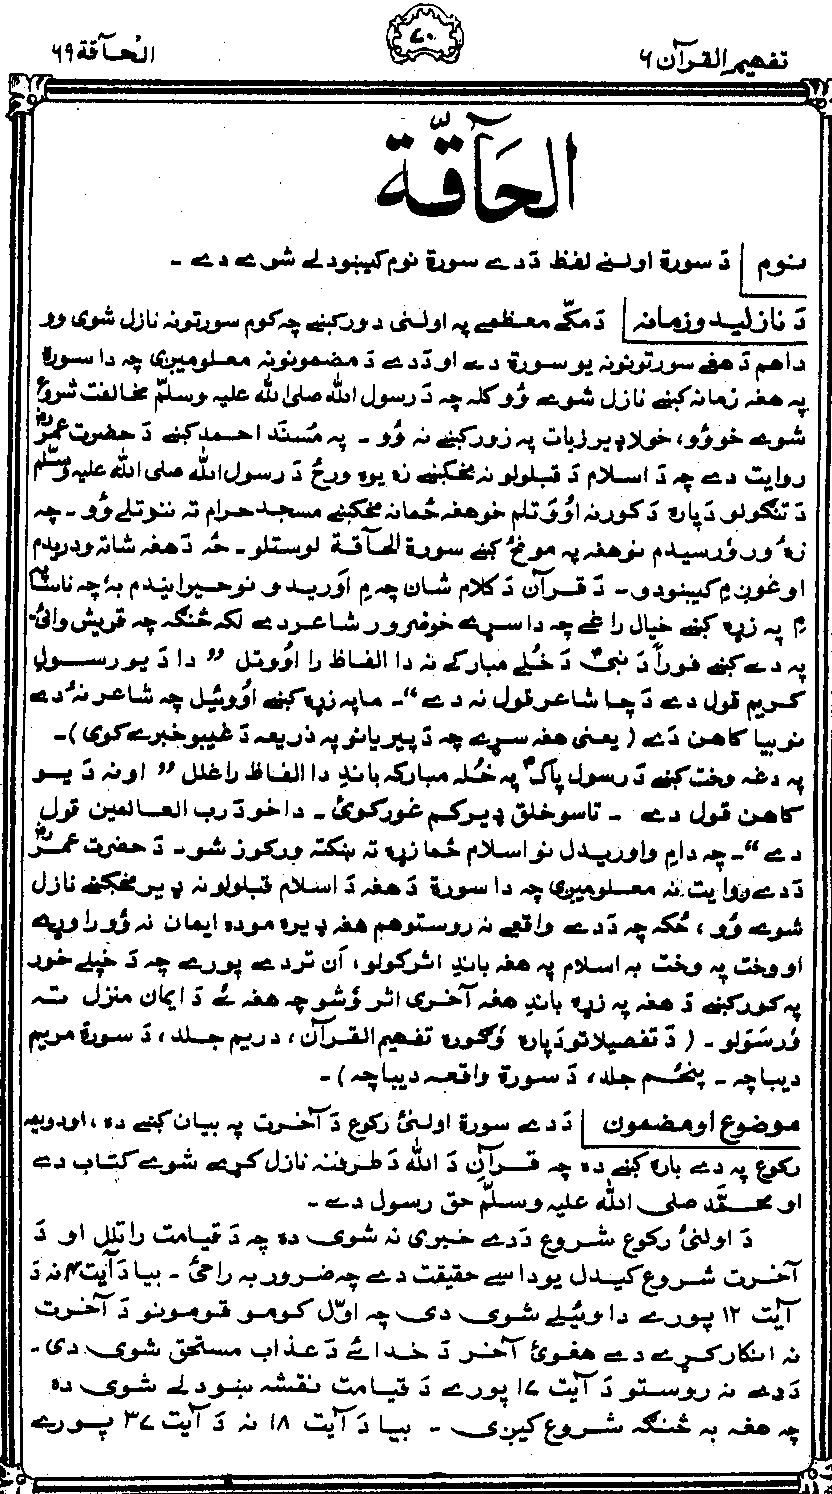 تفهیم القرآن ۶
۷۰
الحآقة ۶۹
الحآقّة
نوم | دَ سورة اولنے لفظ دَدے سورة نوم کیښودلے شوے دے ۔
دَ نازلیدو زمانہ | دَ مکّے معظمے پہ اولنی دور کښے چہ کوم سورتونہ نازل شوی وو
داهم دَ هغے سورتونو نہ یو سورة دے او دَدے دَ مضمونونہ معلومیږی چہ دا سورة
پہ هغہ زمانہ کښے نازل شوے وُو کلہ چہ دَ رسول اللہ صلی اللہ علیہ وسلّم مخالفت شروع
شوے خو وُو، خولا ډیر زیات پہ زور کښے نہ وُو ۔ پہ مُسنَد احمد کښے دَ حضرت عمرؓ
روایت دے چہ دَ اسلام دَ قبلولو نہ مخکښے زہ یوہ ورځ دَ رسول اللہ صلی اللہ علیہ وسلّم
دَ تنګولو دَپارہ دَ کورنہ اوُوتلم خو هغہ ځمانہ مخکښے مسجد حرام تہ ننوتلے وُو ۔ چہ
زہ ور وُرسیدم نو هغہ پہ مونځ کښے سورة الحآقة لوستلو ۔ زہ دَ هغہ شاتہ ودریدم
او غوږ مِ کیښودو ۔ دَ قرآن دَ کلام شان چہ مِ اوریدو نو حیرانیدم بہ چہ ناساپہ
مِ پہ زړہ کښے خیال راغے چہ دا سړے خو ضرور شاعر دے لکہ څنګہ چہ قریش وائی۔
پہ دے کښے فوراً دَ نبیؐ دَ خُلے مبارکے نہ دا الفاظ را اوُوتل ”دا دَ یو رسول
کریم قول دے دَ چا شاعر قول نہ دے“۔ ما پہ زړہ کښے اوُوئیل چہ شاعر نہ ُدے
نو بیا کاهن دَے ( یعنی هغہ سړے چہ دَ پیریانو پہ ذریعہ دَ غیبو خبرے کوی )۔
پہ دغہ وخت کښے دَ رسول پاکؐ پہ خُلہ مبارکہ باندِ دا الفاظ راغلل ”او نہ دَ یو
کاهن قول دے ۔ تاسو خلق ډیر کم غور کوئ ۔ دا خو دَ رب العالمین قول
دے“۔ چہ دا مِ واوریدل نو اسلام ځما زړہ تہ ښکتہ ورکوز شو۔ دَ حضرت عمرؓ
دَدے روایت نہ معلومیږی چہ دا سورة دَ هغہ دَ اسلام قبلولو نہ ډیر مخکښے نازل
شوے وُو، ځکہ چہ دَدے واقعے نہ روستو هم هغہ ډیرہ مودہ ایمان نہ وُو راوړے
او وخت پہ وخت بہ اسلام پہ هغہ باندِ اثر کولو، اَن تر دے پورے چہ دَ خپلے خور
پہ کور کښے دَ هغہ پہ زړہ باندِ هغہ آخری اثر وُشو چہ هغہ ئے دَ ایمان منزل تہ
وُرسَولو ۔ ( دَ تفصیلاتو دَپارہ وُګورہ تفهیم القرآن، دریم جلد، دَ سورة مریم
دیباچہ ۔ پنځم جلد، دَ سورة واقعہ دیباچہ )۔
موضوع او مضمون | دَدے سورة اولنئ رکوع دَ آخرت پہ بیان کښے دہ، او دویمہ
رکوع پہ دے بارہ کښے دہ چہ قرآن دَ اللہ دَ طرفنہ نازل کړے شوے کتاب دے
او محمّد صلی اللہ علیہ وسلّم حق رسول دے ۔
دَ اولنئ رکوع شروع دَدے خبری نہ شوی دہ چہ دَ قیامت راتلل او دَ
آخرت شروع کیدل یو داسے حقیقت دے چہ ضرور بہ راځی ۔ بیا دَ آیت ۴ نہ دَ
آیت ۱۲ پورے دا وئیلے شوی دی چہ اوّل کومو قومونو دَ آخرت
نہ انکار کړے دے هغوئ آخر دَ خدائے دَ عذاب مستحق شوی دی۔
دَدے نہ روستو دَ آیت ۱۷ پورے دَ قیامت نقشہ ښودلے شوی دہ
چہ هغہ بہ څنګہ شروع کیږی ۔ بیا دَ آیت ۱۸ نہ دَ آیت ۳۷ پورے